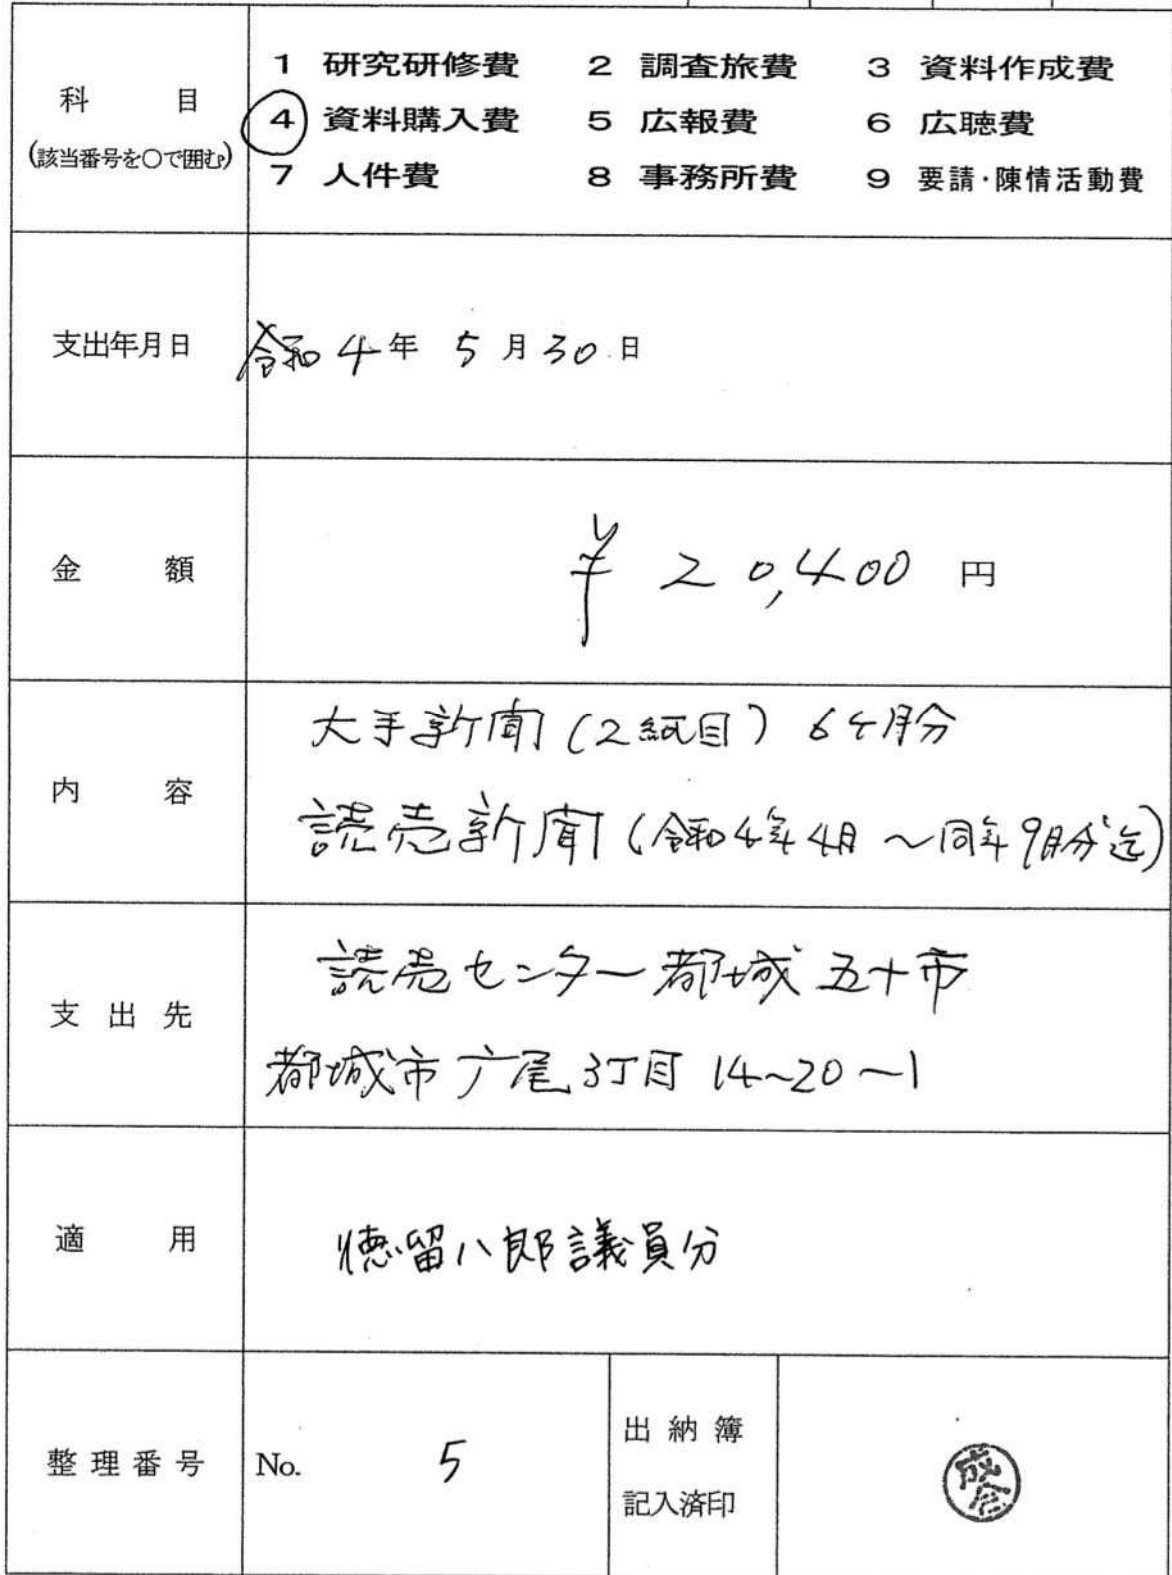 科 目
(該当番号を○で囲む。)
1 研究研修費 2 調査旅費 3 資料作成費
4 資料購入費 5 広報費 6 広聴費
7 人件費 8 事務所費 9 要請・陳情活動費
支出年月日
令和4年 5月30日
金 額
¥ 20,400 円
内 容
大手新聞(2紙目) 6ケ月分
読売新聞(令和4年4月~同年9月分迄)
支 出 先
読売センター都城五十市
都城市 尾3丁目 14~20~1
適 用
徳留八郎議員分
整 理 番 号
No. 5
出 納 簿
記入済印